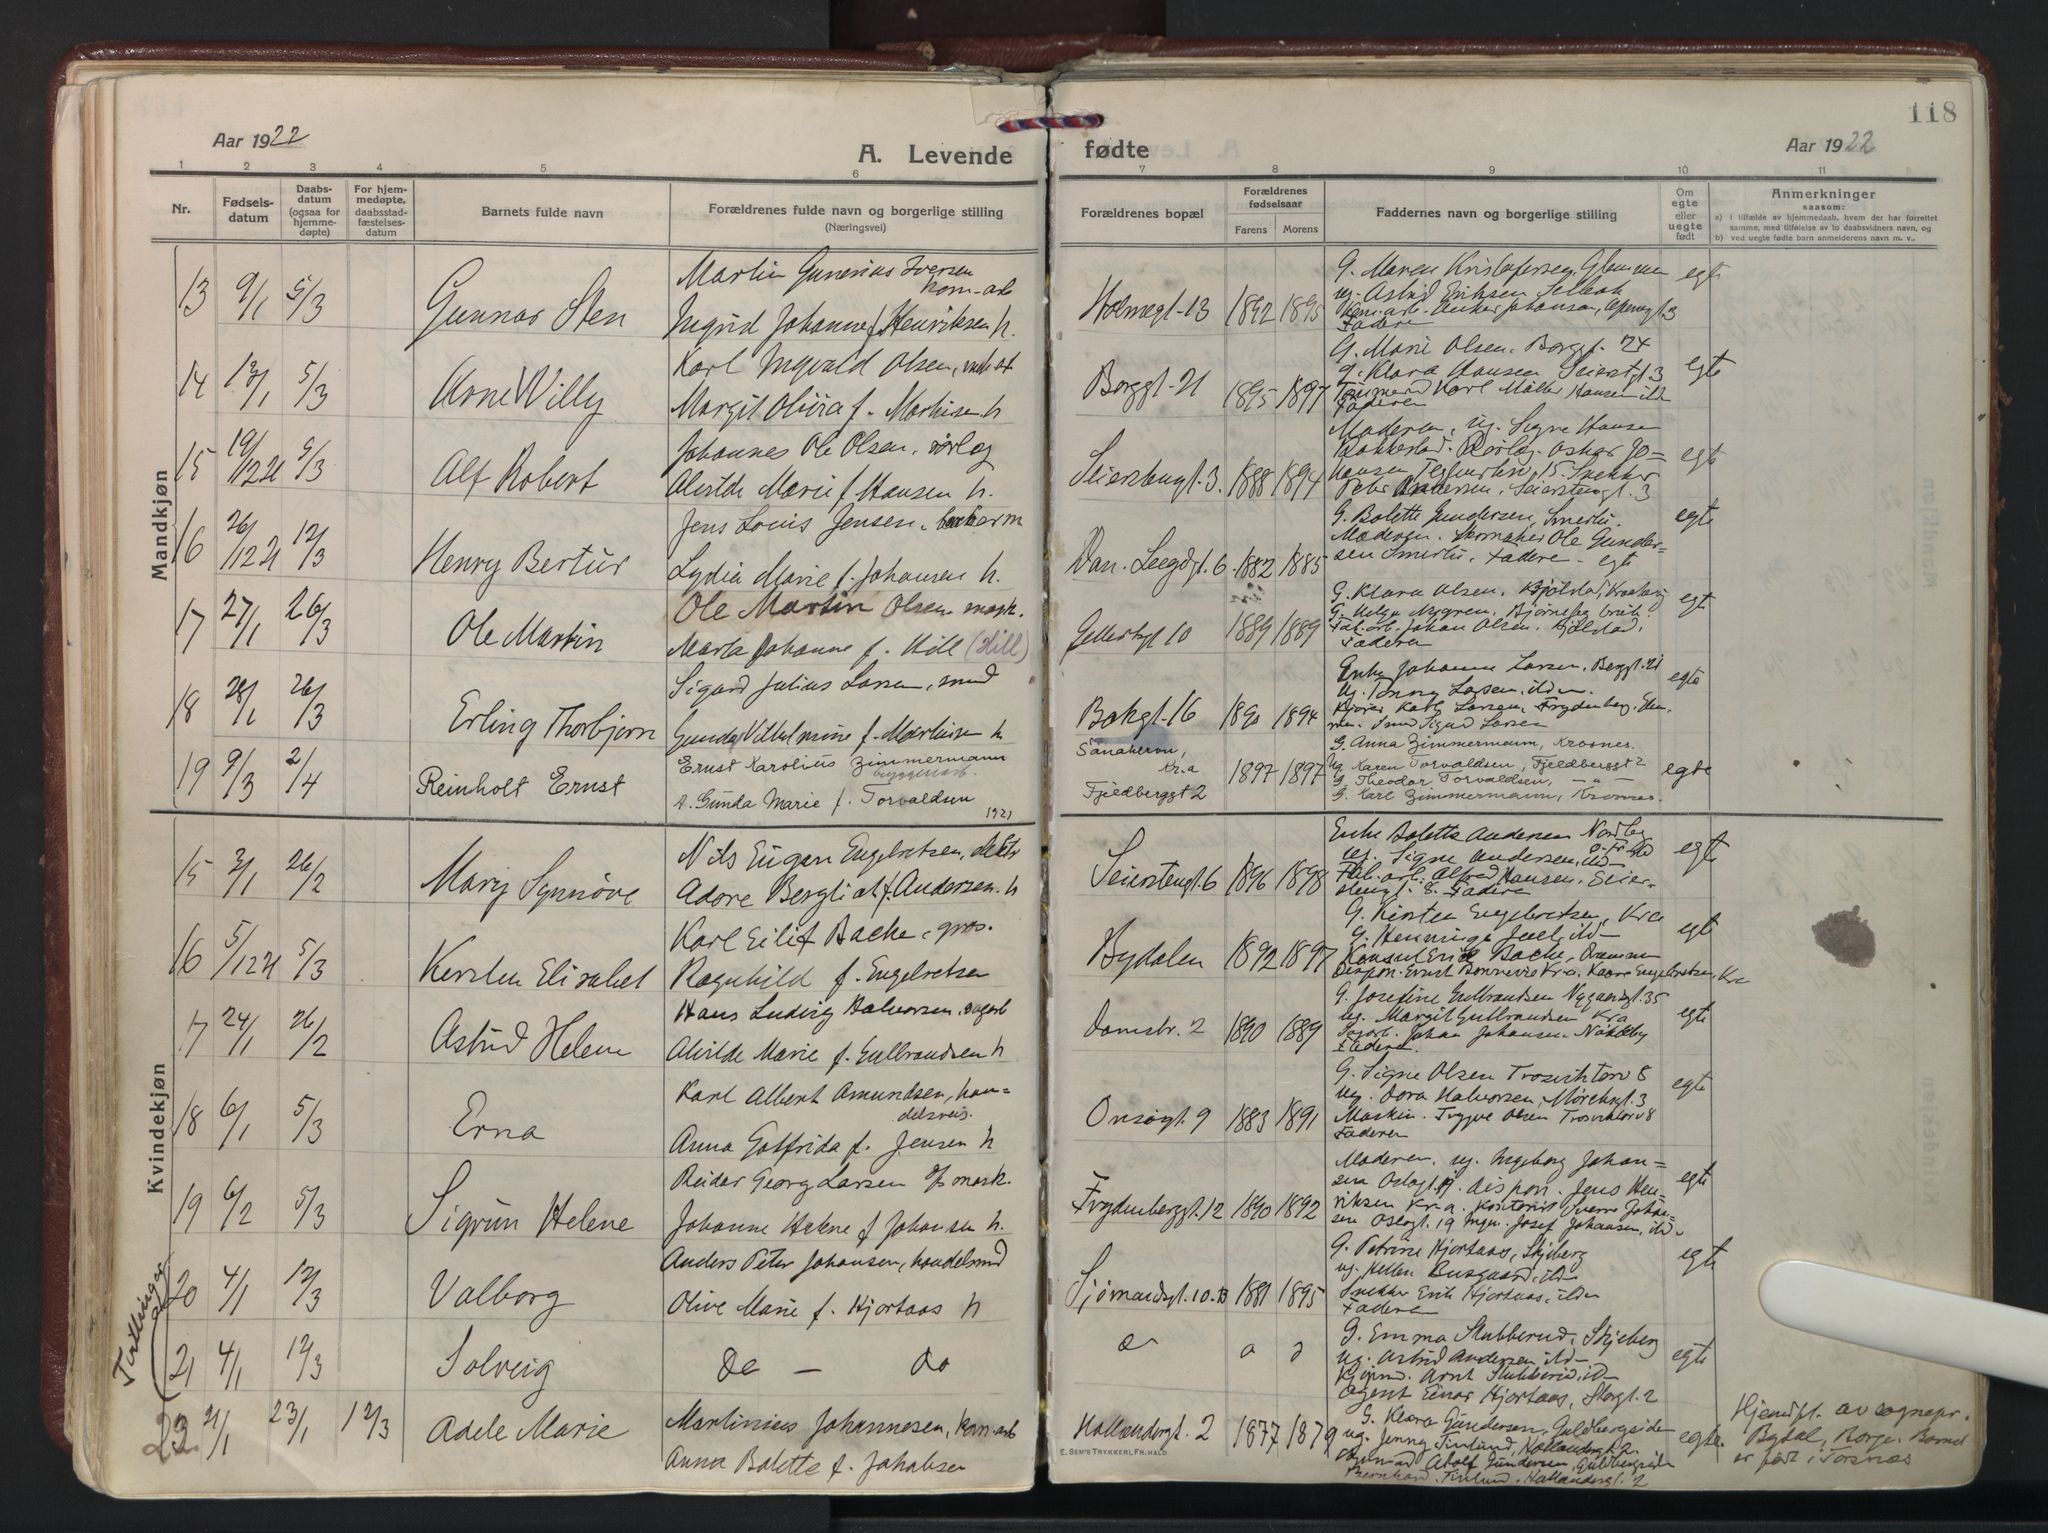 118
Aar 1922
A. Levende
fødte
Aar 1922
1 2 3 4 5 6 7 8 9 10 11
Nr.
Fødsels-
datum
Daabs-
datum
(ogsaa for
hjemme-
døpte)
For hjem-
medøpte,
daabsstad-
fæstelses-
datum
Barnets fulde navn
Forældrenes fulde navn og borgerlige stilling
(Næringsvei)
Forældrenes bopæl
Forældrenes
fødselsaar
Farens Morens
Faddernes navn og borgerlige stilling
Om
egte
eller
uegte
født
Anmerkninger
saasom:
a) i tilfælde av hjemmedaab, hvem der har forrettet
samme, med tilføielse av to daabsvidners navn, og
b) ved uegte fødte barn anmelderens navn m. v.,
Mandkjøn
13 9/1 5/3 Gunnar Sten
Martin Gunerius Iversen
kom.arb
Ingrid Johanne f. Henriksen h.
Holmegt. 13 1892 1895
G. Maren Kristofersen, Glemmen
ug. Astrid Eriksen Selbak
Faderen
egte
14 13/1 5/3 Arne Willy
Karl Ingvald Olsen,
Margit Olvira f. Martinsen h
Borggt. 21 1895 1897
G. Marie Olsen. Borggt. 24
G. Klara Hansen Seierstgt. 3
Karl Møller Hansen ild
Faderen
egte
15 19/12 21 5/3 Alf Robert
Johannes Ole Olsen, rørlæg
Alvilde Marie f. Hansen h.
Seierstengt. 3. 1888 1894
Moderen, ug. Signe Hansen
Rørlæg. Oskar Jo-
hansen 15. Snekker
Petr Andersen. Seierstengt. 3
egte
16 26/12 21 12/3 Henry Bertur
Jens Louis Jensen,
Lydia Marie f. Johansen h.
Dan. Leegdgt. 6 1882 1885
G. Bolette Gundersen, Smertu.
Moderen. Skomaker Ole Gunder-
sen Smertu. Fadere - egt
egte
17 27/1 26/3 Ole Martin
Ole Martin Olsen mask.
Marta Johanne f. Hill (Hill)
Gellertgt 10 1889 1889
G. Klara Olsen. Kjølstad,
G. Helga Nygren,
Fab.arb. Johan Olsen. Kjølstad.
Faderen
egte
18 28/1 26/3 Erling Thorbjørn
Sigurd Julius Larsen, smed
Gunda Vilhelmine f. Martinsen h
Bakgt. 16 1890 1894
Enke Johanne Larsen, Borggt. 21
ug. Larsen, ildn.
Karl Larsen, Frydenberg, Glem-
men. Smed Sigurd Larsen
egte
19 9/3 2/4 Reinholt Ernst
Ernst Karolius Zimmermann
h. Gunda Marie f. Torvaldsen
1921
Kr.a
Fjeldberggt 2
1897 1897
G. Anna Zimmermann, Krosnes.
Ug Karen Torvaldsen, Fjeldberggt 2
G. Theodor Torvaldsen, — " —
G. Karl Zimmermann, Krosnes.
egte
Kvindekjøn
15 3/1 26/2 Mary Synnøve
Nils Eugen Engebretsen,
Adore Bergliot f. Andersen. h
Seierstengt. 6 1896 1898
Enke Bolette Andersen Nordby
ug. Signe Andersen, ild-
Fab. arb. Alfred Hansen, Seier-
stengt. 8. Fadere
egte
16 5/12 21 5/3 Kersten Elisabet
Karl Eilif Backe, gros.
Ragnhild f. Engebretsen
Bydalen 1892 1897
G. Kirsten Engebretsen, Kra
G. Henninge Juell, ild-
Konsul Erik Backe, Drammen
Dispon. Ernst Bonnevie Kra. Kaare Engebretsen, Kra
egt
17 24/1 26/2 Astrid Helene
Hans Ludvig Halvorsen, sagarb
Alvilde Marie f. Gulbrandsen h
Damstr. 2 1890 1889
G. Josefine Gulbrandsen Nygaardsgt. 35
ug. Margit Gulbrandsen Kra
Sagarb. Johan Johansen. Nabbeby
Faderen.
egte
18 6/1 5/3 Erna
Karl Albert Amundsen, han-
delsreis.
Anna Gotfrida f. Jensen h
Onsøgt. 9 1883 1891
G. Signe Olsen Trosviktorv 8
ug. Dora Halvorsen, Mørchsgt. 3
Maskin. Trygve Olsen Trosviktorv 8
Faderen
egte
19 6/2 5/3 Sigrun Helene
Reidar Georg Larsen mask.
Johanne Helene f. Johansen h.
Frydenberggt. 12 1890 1892
Moderen, ug. Ingeborg Johan-
sen Oslogt. 19. dispon. Jens Hen-
riksen Kr.a. Kontorist Sverre Johan-
sen Oslogt. 19 Ingn. Josef Johansen, ild-
egte
Tvillinger
20 4/1 12/3 Valborg
Anders Peter Johansen, handelsmd
Olive Marie f. Hjortaas h
Sjømandsgt. 10.B 1881 1895
G. Petrine Hjortaas, Skjeberg
ug. Hellen Busgaard, ildn
Snekker Erik Hjortaas, ildn
Faderen
egte
21 4/1 12/3 Solveig
do — do
G. Emma Stubberud, Skjeberg
ug. Astrid Andersen ild-
Arnt Stubberud, ild-
Agent Einar Hjortaas, Storgt. 2
egte
23 21/1 23/1 12/3 Adele Marie
Martinius Johannesen, kom.arb
Anna Bolette f. Johansen
Hollendergt. 2 1877 1879
G. Klara Gundersen, Guldbergsiden
ug. Jenny Finlund, Hollendergt. 2.
Adolf Gundersen, Guldbergsiden
Bernhard Finlund, Hollendergt. 2
egte.
Hjemdpt. av sognepr.
Bydal, Borge. Barnet
er født i Torsnæs
E. SEM'S TRYKKERI, FR.HALD